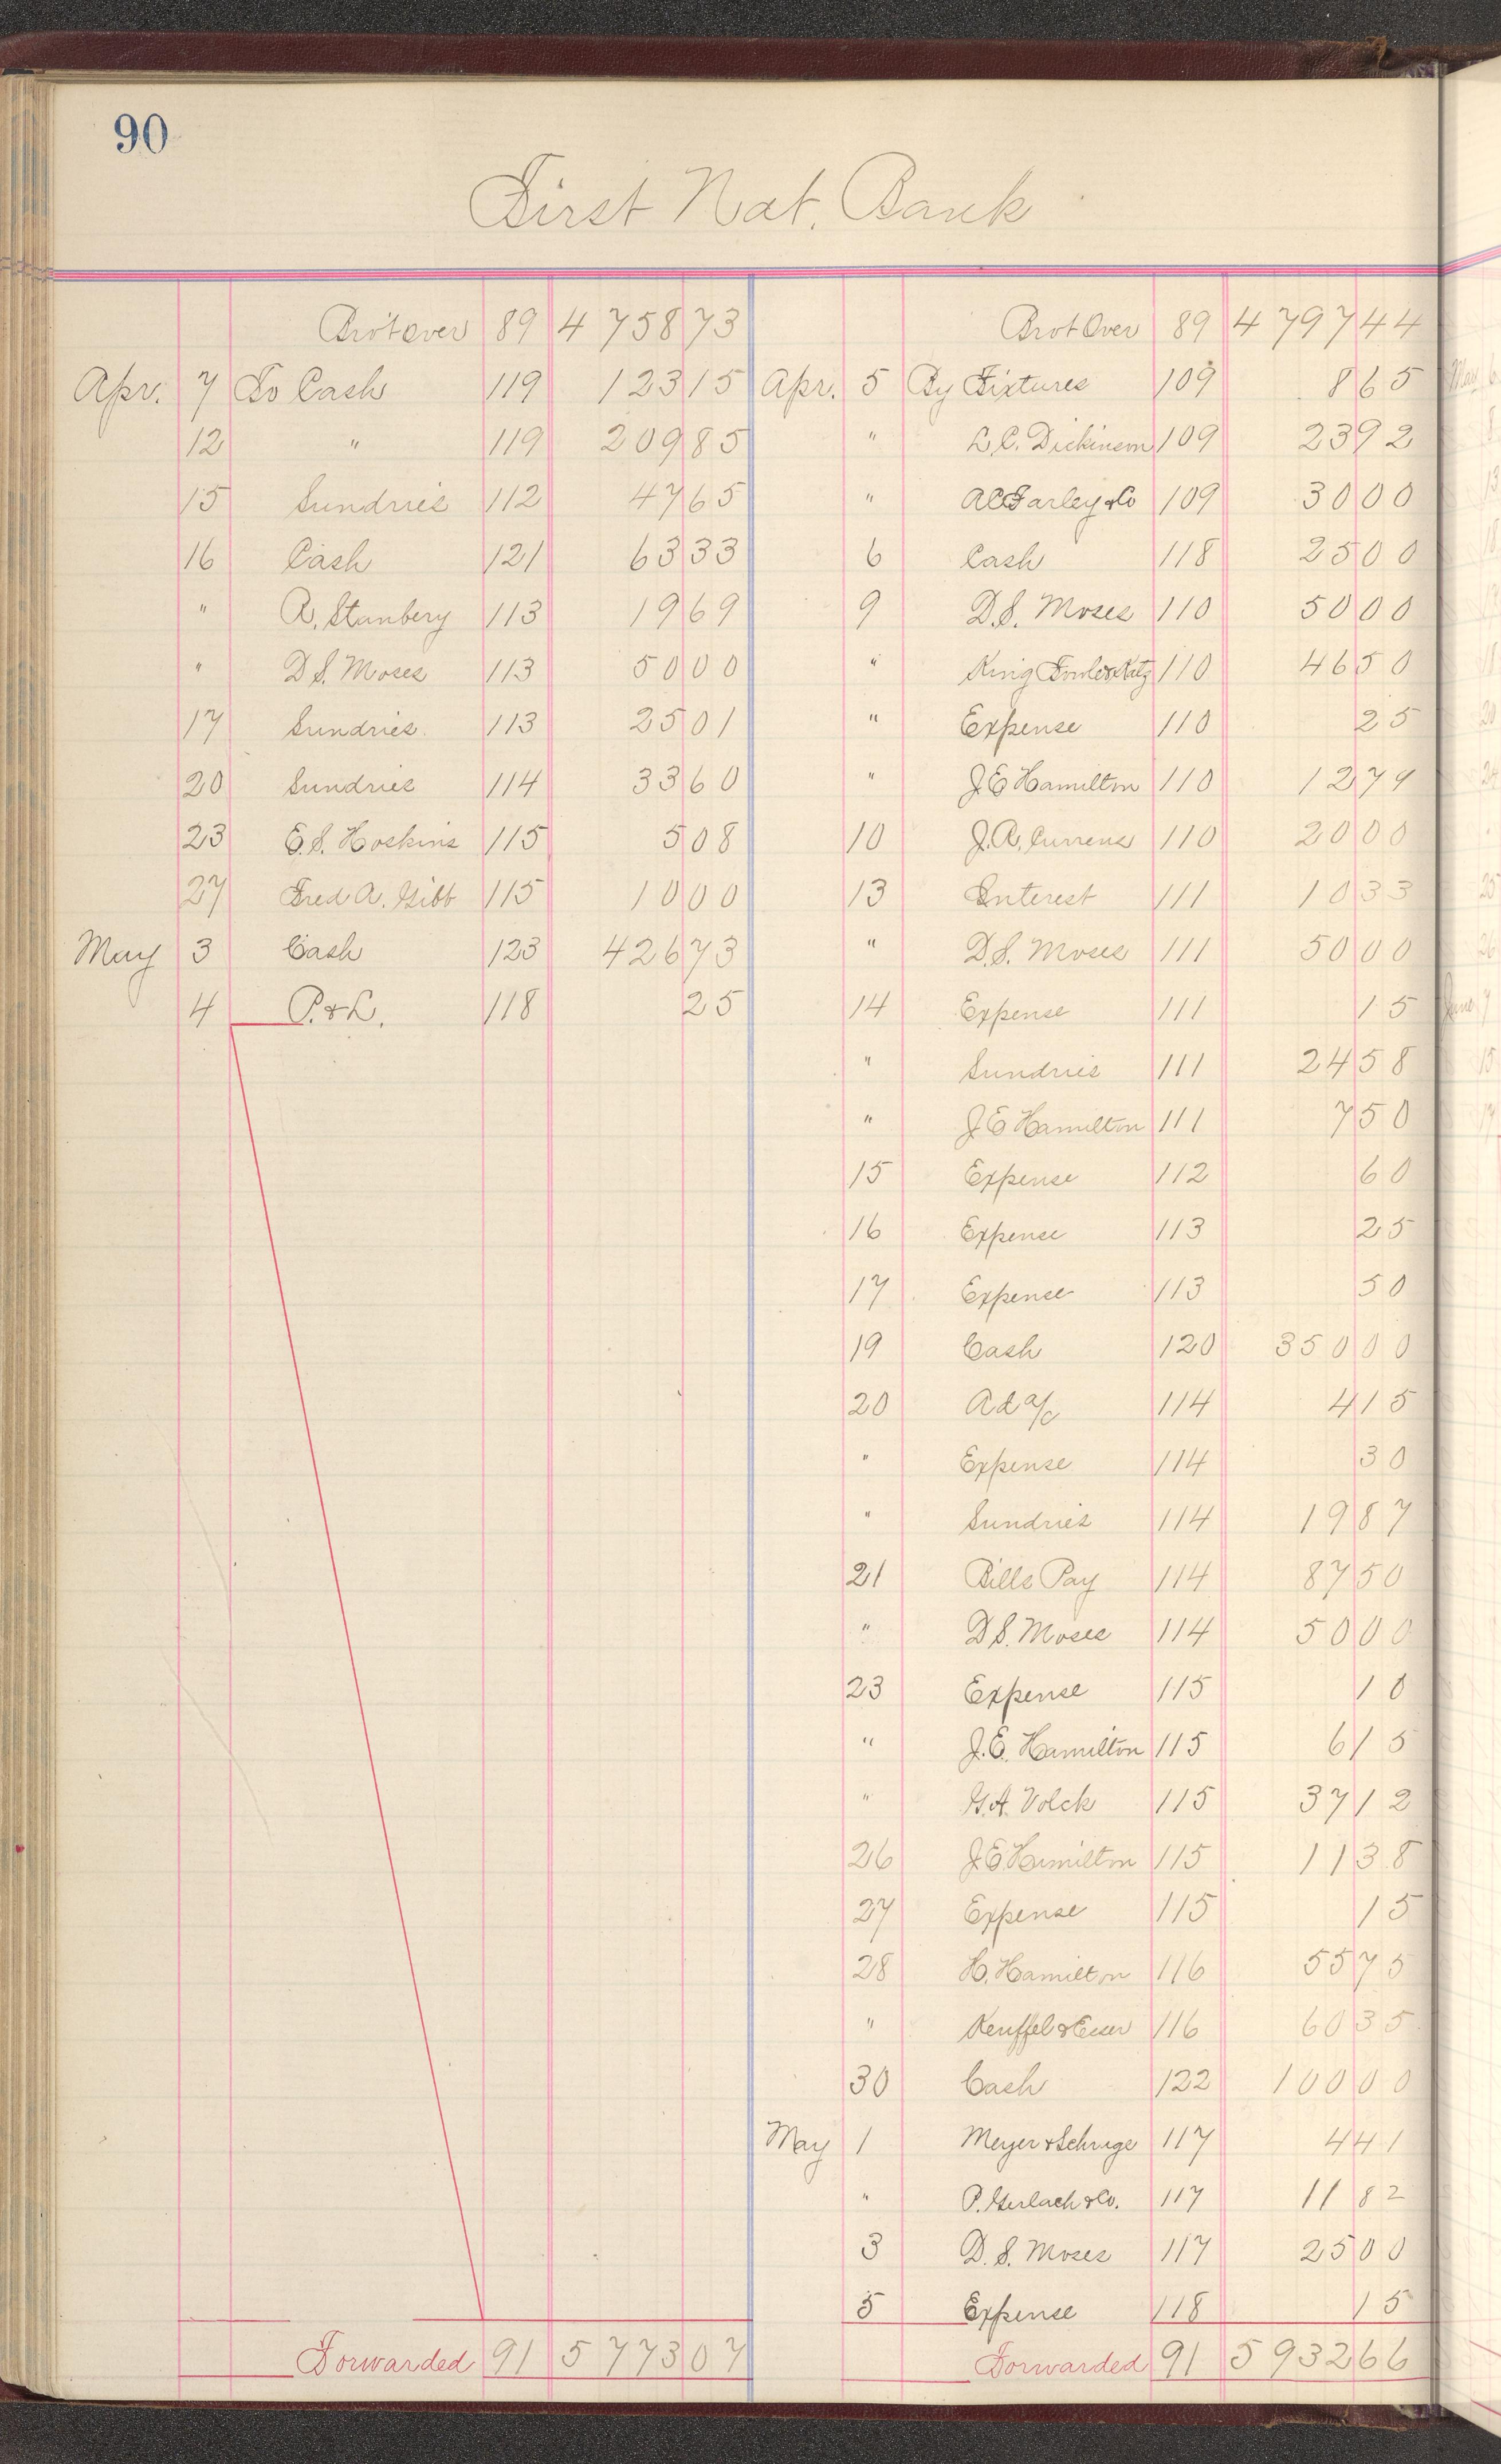 90
First Nat. Bank
Brot over 89 4 758 73
Apr. 7 To Cash 119 123 15
12 " 119 209 85
15 Sundries 112 47 65
16 Cash 121 63 33
" R. Stanbery 113 19 69
" D. S. Moses 113 50 00
17 Sundries 113 25 01
20 Sundries 114 33 60
23 E. S. Hoskins 115 5 08
27 Fred A. Gibb 115 10 00
May 3 Cash 123 426 73
4 P. & L. 118 25
Forwarded 91 5 773 07
Brot Over 89 4 797 44
Apr. 5 By Fixtures 109 8 65
" L. C. Dickinson 109 23 92
" A C Farley & Co 109 30 00
6 Cash 118 25 00
9 D. S. Moses 110 50 00
" King Fowle & Katz 110 46 50
" Expense 110 25
" J E Hamilton 110 12 79
10 J. A. Currens 110 20 00
13 Interest 111 10 33
" D. S. Moses 111 50 00
14 Expense 111 15
" Sundries 111 24 58
" J E Hamilton 111 7 50
15 Expense 112 60
16 Expense 113 25
17 Expense 113 50
19 Cash 120 350 00
20 Ad a/c 114 4 15
" Expense 114 30
" Sundries 114 19 87
21 Bills Pay 114 87 50
" D. S. Moses 114 50 00
23 Expense 115 10
" J. E. Hamilton 115 6 15
" G. A. Volck 115 37 12
26 J E Hamilton 115 11 38
27 Expense 115 15
28 H. Hamilton 116 55 75
" Keuffel & Esser 116 60 35
30 Cash 122 100 00
May 1 Meyer & Schuge 117 4 41
" P. Gerlach & Co. 117 11 82
3 D. S. Moses 117 25 00
5 Expense 118 15
Forwarded 91 5 932 66